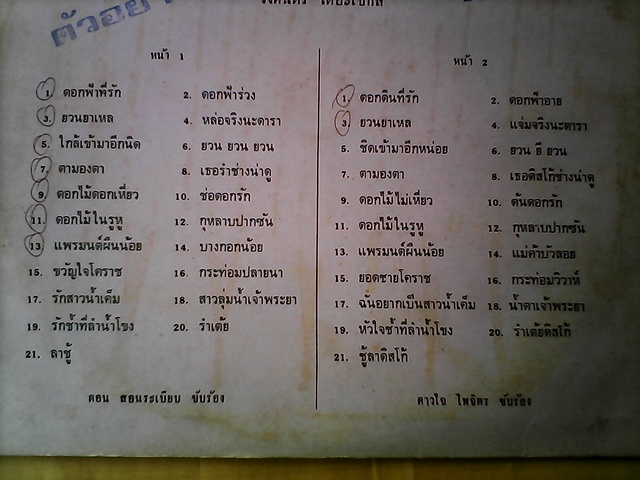 ตัวอย่
หน้า 1
1. ดอกฟ้าที่รัก 2. ดอกฟ้าร่วง
3. ยวนยาเหล 4. หล่อจริงนะดารา
5. ใกล้เข้ามาอีกนิด 6. ยวน ยวน ยวน
7. ตามองตา 8. เธอรำช่างน่าดู
9. ดอกไม้ดอกเหี่ยว 10. ช่อดอกรัก
11. ดอกไม้ในรูหู 12. กุหลาบปากซัน
13. แพรมนต์ผืนน้อย 14. บางกอกน้อย
15. ขวัญใจโคราช 16. กระท่อมปลายนา
17. รักสาวน้ำเค็ม 18. สาวลุ่มน้ำเจ้าพระยา
19. รักช้ำที่ลำน้ำโขง 20. รำเต้ย
21. ลาชู้
ดอน สอนระเบียบ ขับร้อง
หน้า 2
1. ดอกดินที่รัก 2. ดอกฟ้าอาย
3. ยวนยาเหล 4. แจ่มจริงนะดารา
5. ชิดเข้ามาอีกหน่อย 6. ยวน ยี ยวน
7. ตามองตา 8. เธอดิสโก้ช่างน่าดู
9. ดอกไม้ไม่เหี่ยว 10. ต้นดอกรัก
11. ดอกไม้ในรูหู 12. กุหลาบปากซัน
13. แพรมนต์ผืนน้อย 14. แม่ค้าบัวลอย
15. ยอดชายโคราช 16. กระท่อมวิวาห์
17. ฉันอยากเป็นสาวน้ำเค็ม 18. น้ำตาเจ้าพระยา
19. หัวใจช้ำที่ลำน้ำโขง 20. รำเต้ยดิสโก้
21. ชู้ลาดิสโก้
ดาวใจ ไพจิตร ขับร้อง